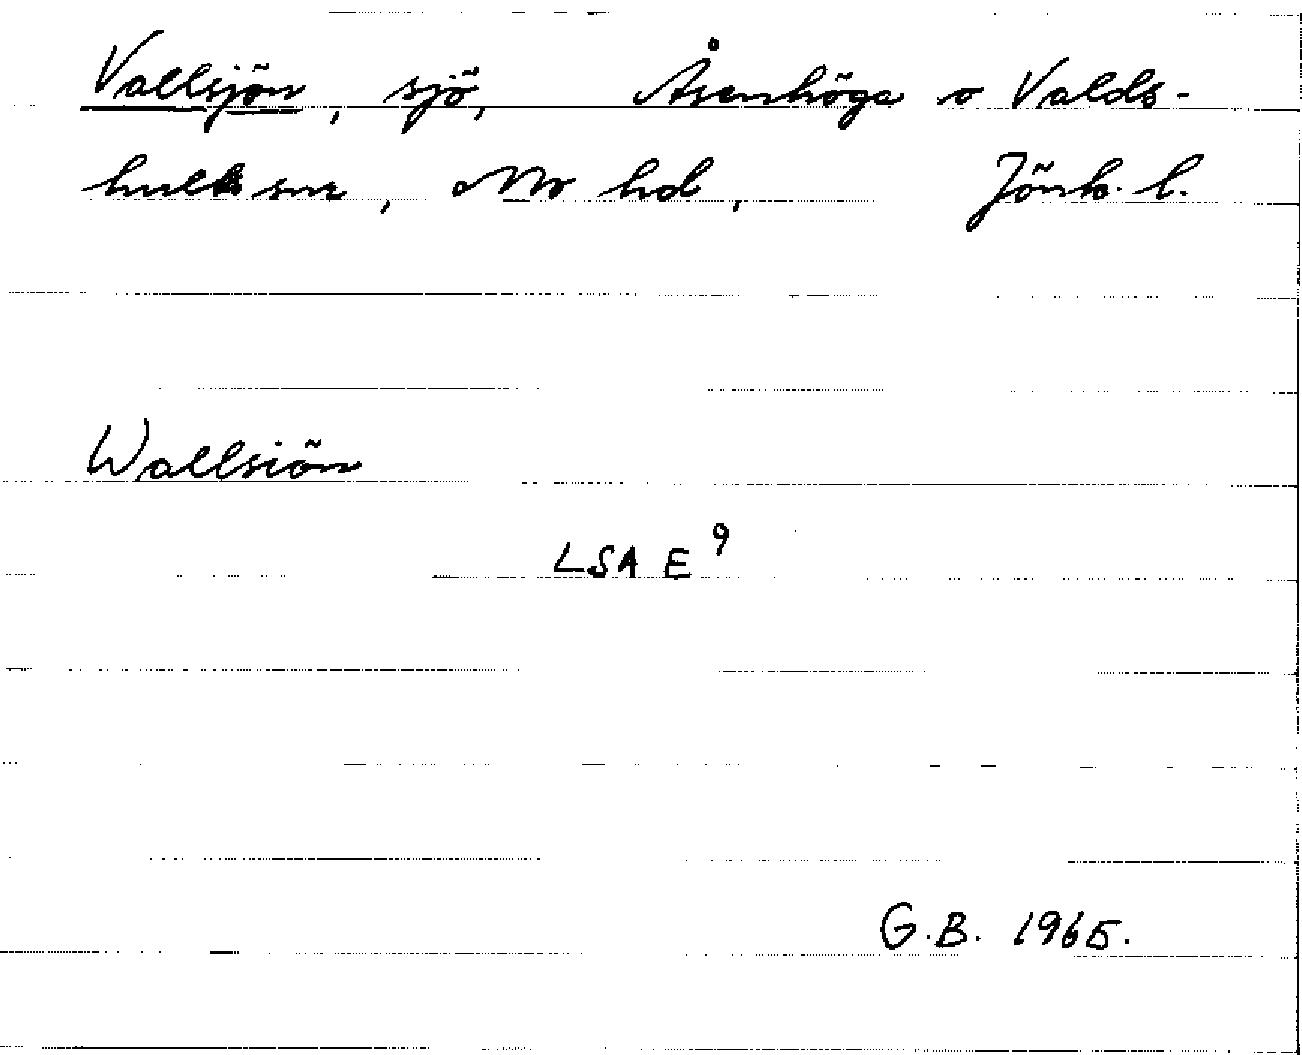 Vallsjön, sjö, Åsenhöga o Valds-
hults snr, Mo hd, Jönk. l.
Wallsiön
LSA E 9
G.B. 1965.